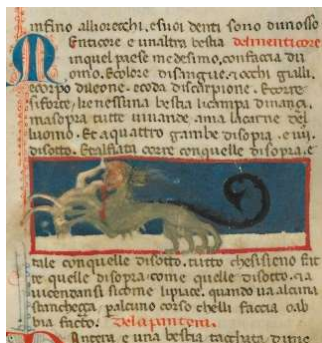 infino alliorecchi. esuoi denti sono dunosso
Enticore e unaltra bestia delmenticore
inquel paese medesimo, confaccia du
omo. Ecolore disangue. occhi gialli.
ecorpo dileone. ecoda discarpione. Ecorre
siforte, ke nessuna bestia licampa dinançi.
masopra tutte uivande, ama lacarne del
luomo. Et a quattro gambe disopra. e iiij.
disotto. Etalfiata corre conquelle disopra. e
tale conquelle disotto. tutto chesisieno fat
te quelle disopra come quelle disotto.
uicendansi sicome lipiace. quando ua alcuna
stanchegga. palcuno corso chelli faccia oab
bia facto. Dela pantera.
Antera e una bestia tacchata dime